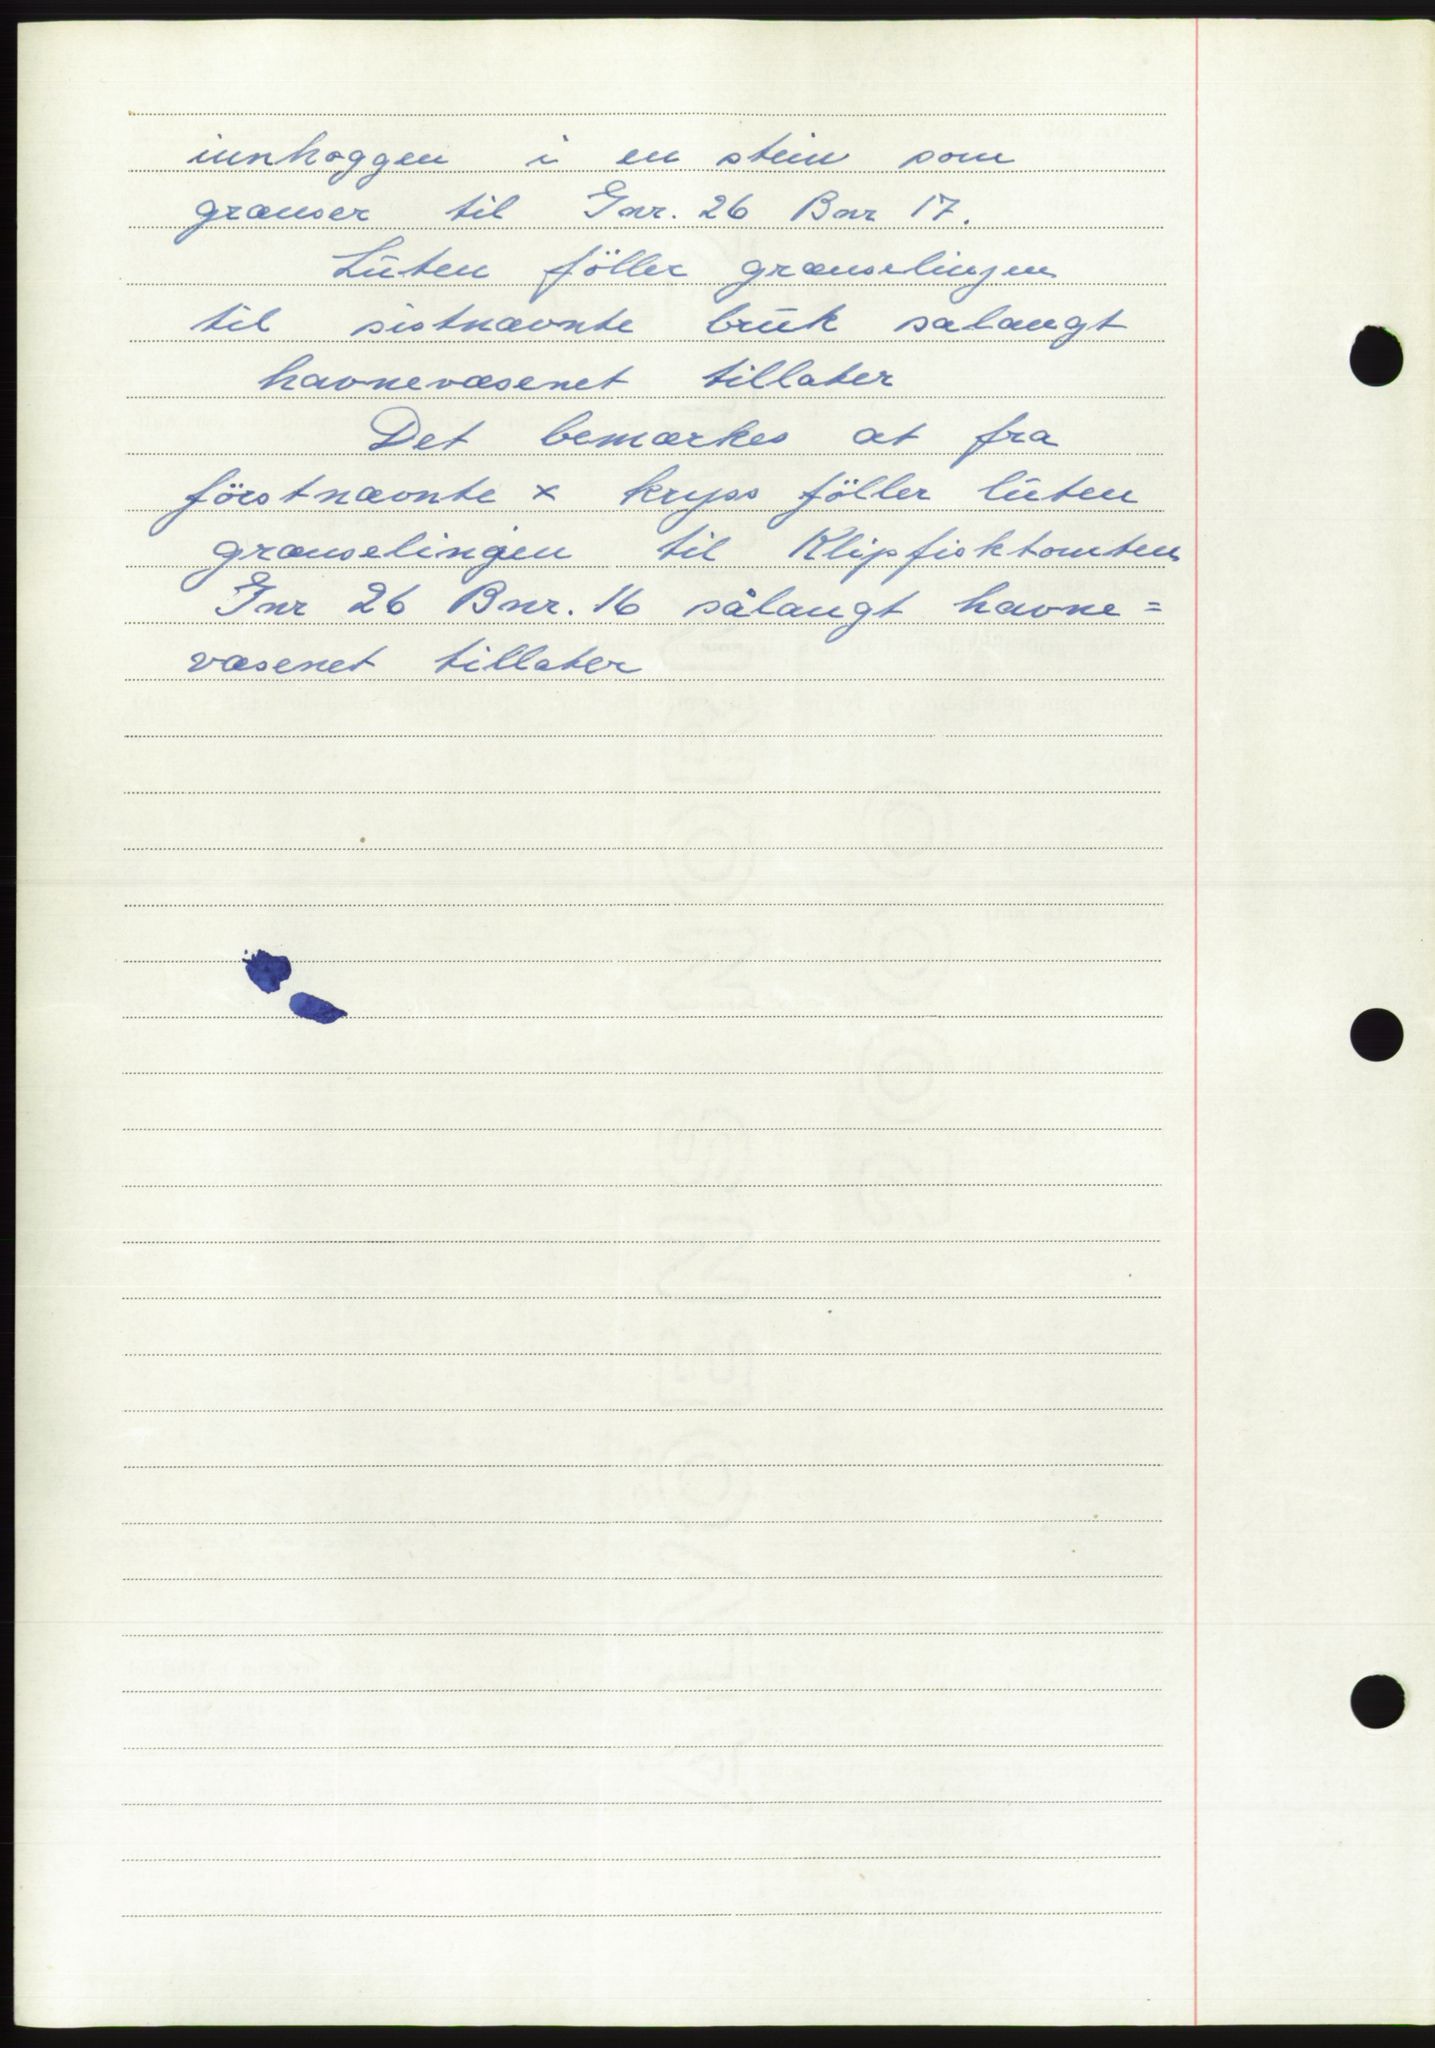 innhoggen i en stein som
grænser til Gnr. 26 Bnr 17.
Lüten föller grænselinjen
til sistnævnte brük salangt
havnevæsenet tillater
Det bemærkes at fra
förstnævnte x kryss föller lüten
grænselinjen til Klipfisktomten
Gnr 26 Bnr. 16 sålangt havne=
væsenet tillater